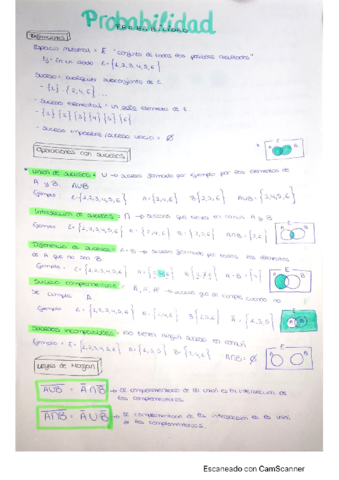 Probabilidad
Definiciones
Espacio muestral = E "conjunto de todos los posibles resultados"
Ej = En un dado E={1,2,3,4,5,6}
Suceso = cualquier subconjunto de E.
- {1} · {2,4,6} ...
- Suceso elemental = un solo elemento de E.
- {1} {2} {3} {4} {5} {6}
- Suceso imposible / suceso vacío = Ø
Operaciones con sucesos
Unión de sucesos = U → suceso formado por los elementos de
A y B. A∪B
Ejemplo: E={1,2,3,4,5,6} A={2,4,6} B={2,3,6} A∪B={2,3,4,6}
Intersección de sucesos = ∩ → sucesos que tienen en común A y B
Ejemplo: E={1,2,3,4,5,6} A={2,4,6} B={2,3,6} A∩B={2,6}
Diferencia de sucesos = A-B → suceso formado por todos los elementos
de A que no son B.
Ejemplo = E={1,2,3,4,5,6} A={2,4,6} A-B={4}
Suceso complementario = → suceso que se cumple cuando no
se cumple A
Ejemplo: E={1,2,3,4,5,6}
Sucesos incompatibles = no tienen ningún suceso en común
Ejemplo = E={1,2,3,4,5,6} A∩B=Ø
Leyes de Morgan
A̅∪̅B̅ = A̅∩B̅ → El complementario de la unión es la intersección de
los complementarios.
A̅∩̅B̅ = A̅∪B̅ → El complementario de la intersección es la unión
de los complementarios.
Escaneado con CamScanner